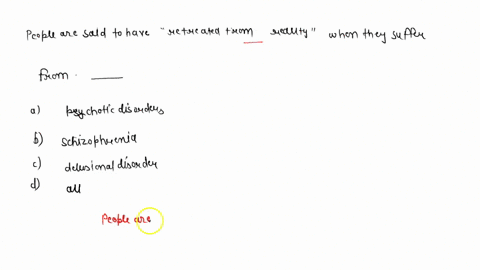 People are said to have "retreated from reality" when they suffer
from.
a) psychotic disorders
b) schizophrenia
c) delusional disorder
d) all
People are